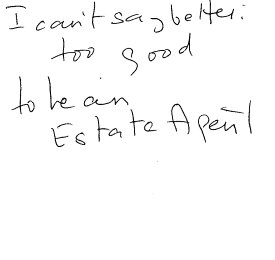 I can't say better:
too good
to be an
Estate Agent